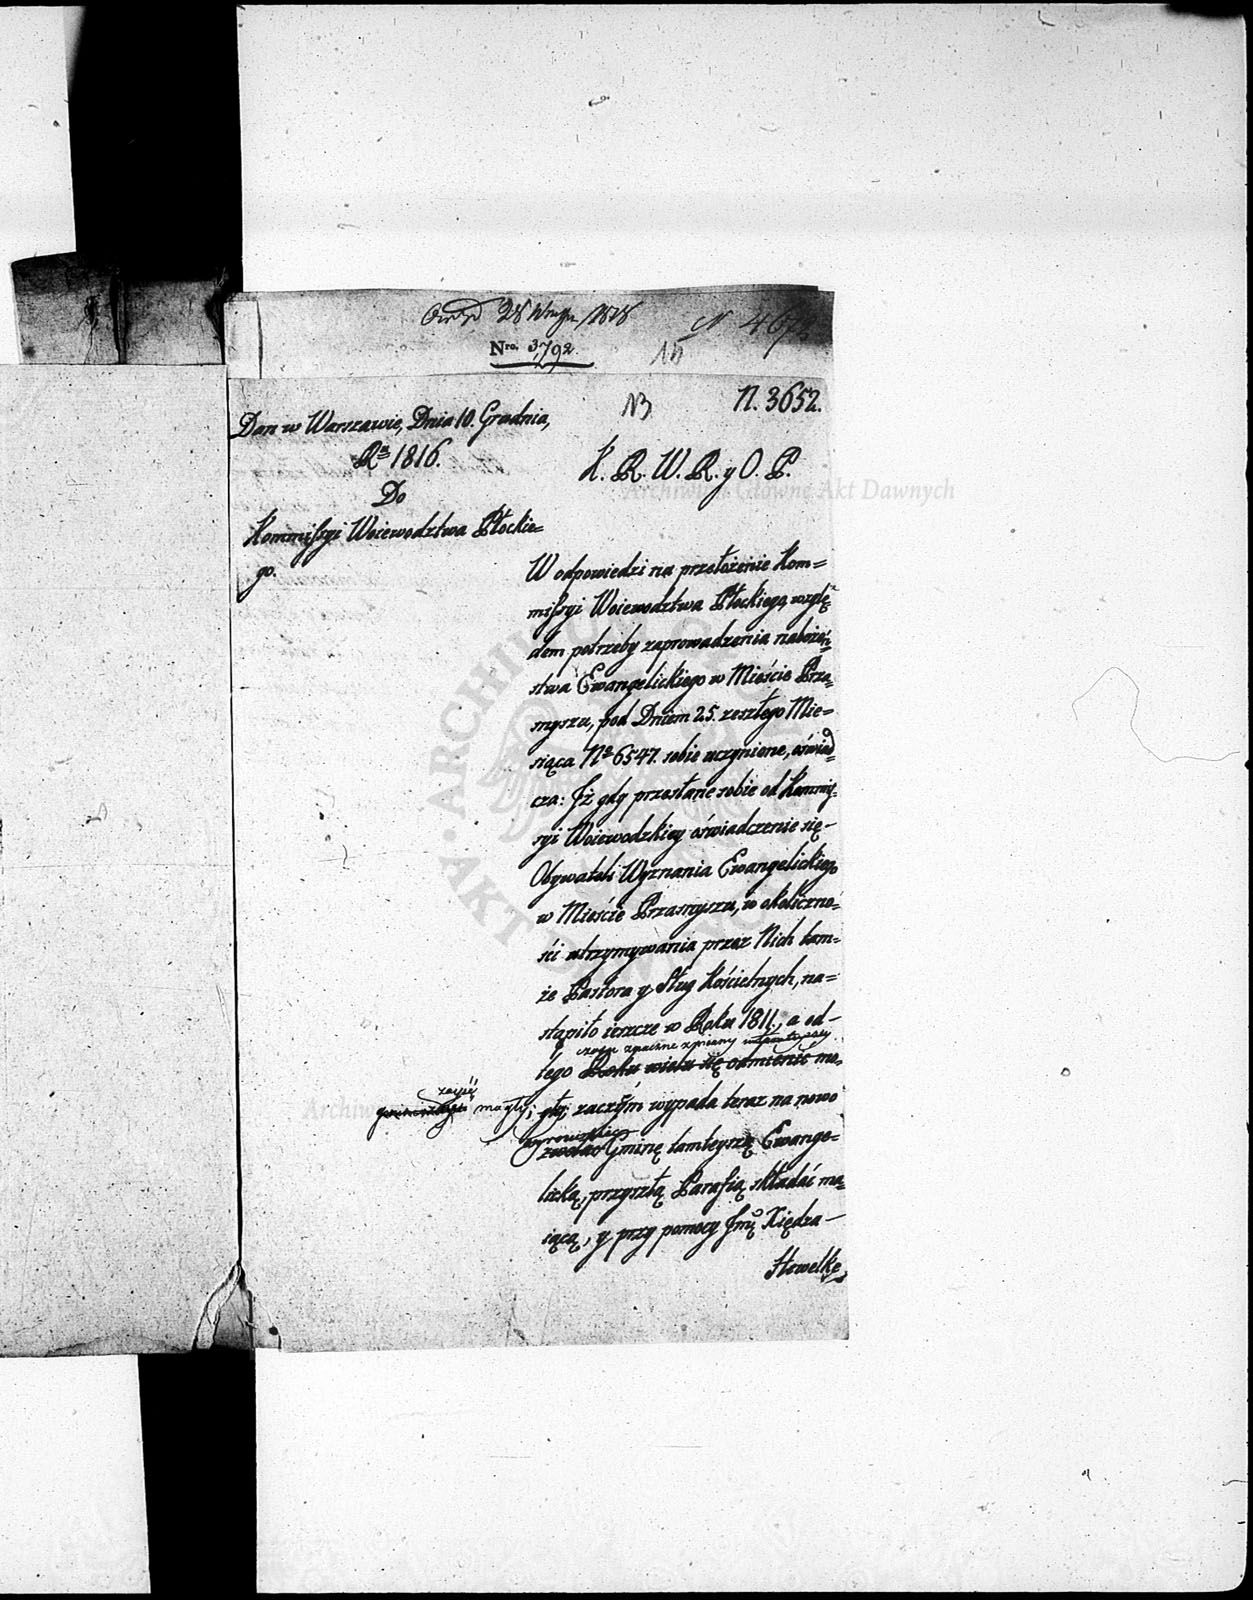 28 1818
N 467
Nro. 3,792.
N. 3652.
Dan w Warszawie, Dnia 10. Grudnia,
Ru 1816.
K. R. W. R. y O. P.
Do
Kommissyi Woiewodztwa Płockie=
go.
W odpowiedzi na przełożenie Kom=
missyi Woiewodztwa Płockiego, wzglę=
dem potrzeby zaprowadzenia nabożeń=
stwa Ewangelickiego w Mieście Prza=
snyszu, pod Dniem 25. zeszłego Mie=
siąca No 6547. sobie uczynione, oświad=
cza: Iż gdy przesłane sobie od Kommis=
syi Woiewodzkiey oświadczenie się
Obywateli Wyznania Ewangelickiego
w Mieście Przasnyszu, w okoliczno=
ści utrzymywania przez Nich tam=
że Pastora y Sług Kościelnych, na=
stąpiło ieszcze w Roku 1811., a od
czasu znaczne zmiany
tego Roku wiele się odmienić mo=
zayść
mogły; gły; zaczym wypada teraz na nowo
zwołać Gminę tamteyszą Ewange=
licką, przyszłą Parafią składać ma=
iącą, y przy pomocy Jmć Xiędza
Hewelke,
Archiwum Główne Akt Dawnych